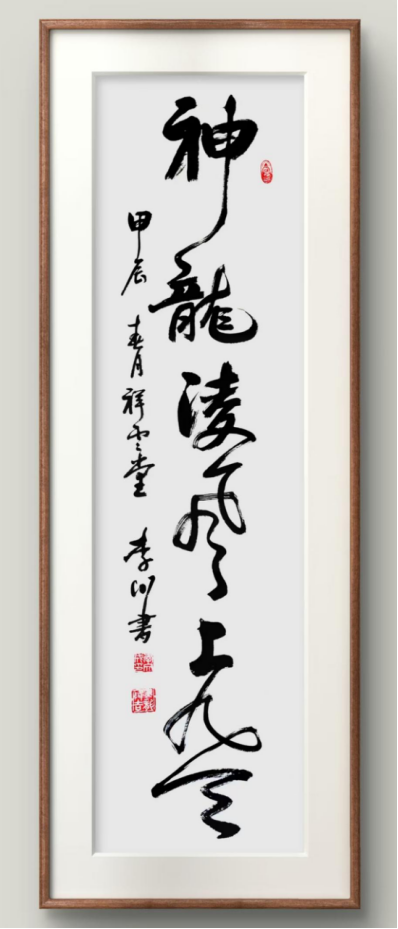 神龍凌風上九天
甲辰春月祥雲堂李川書